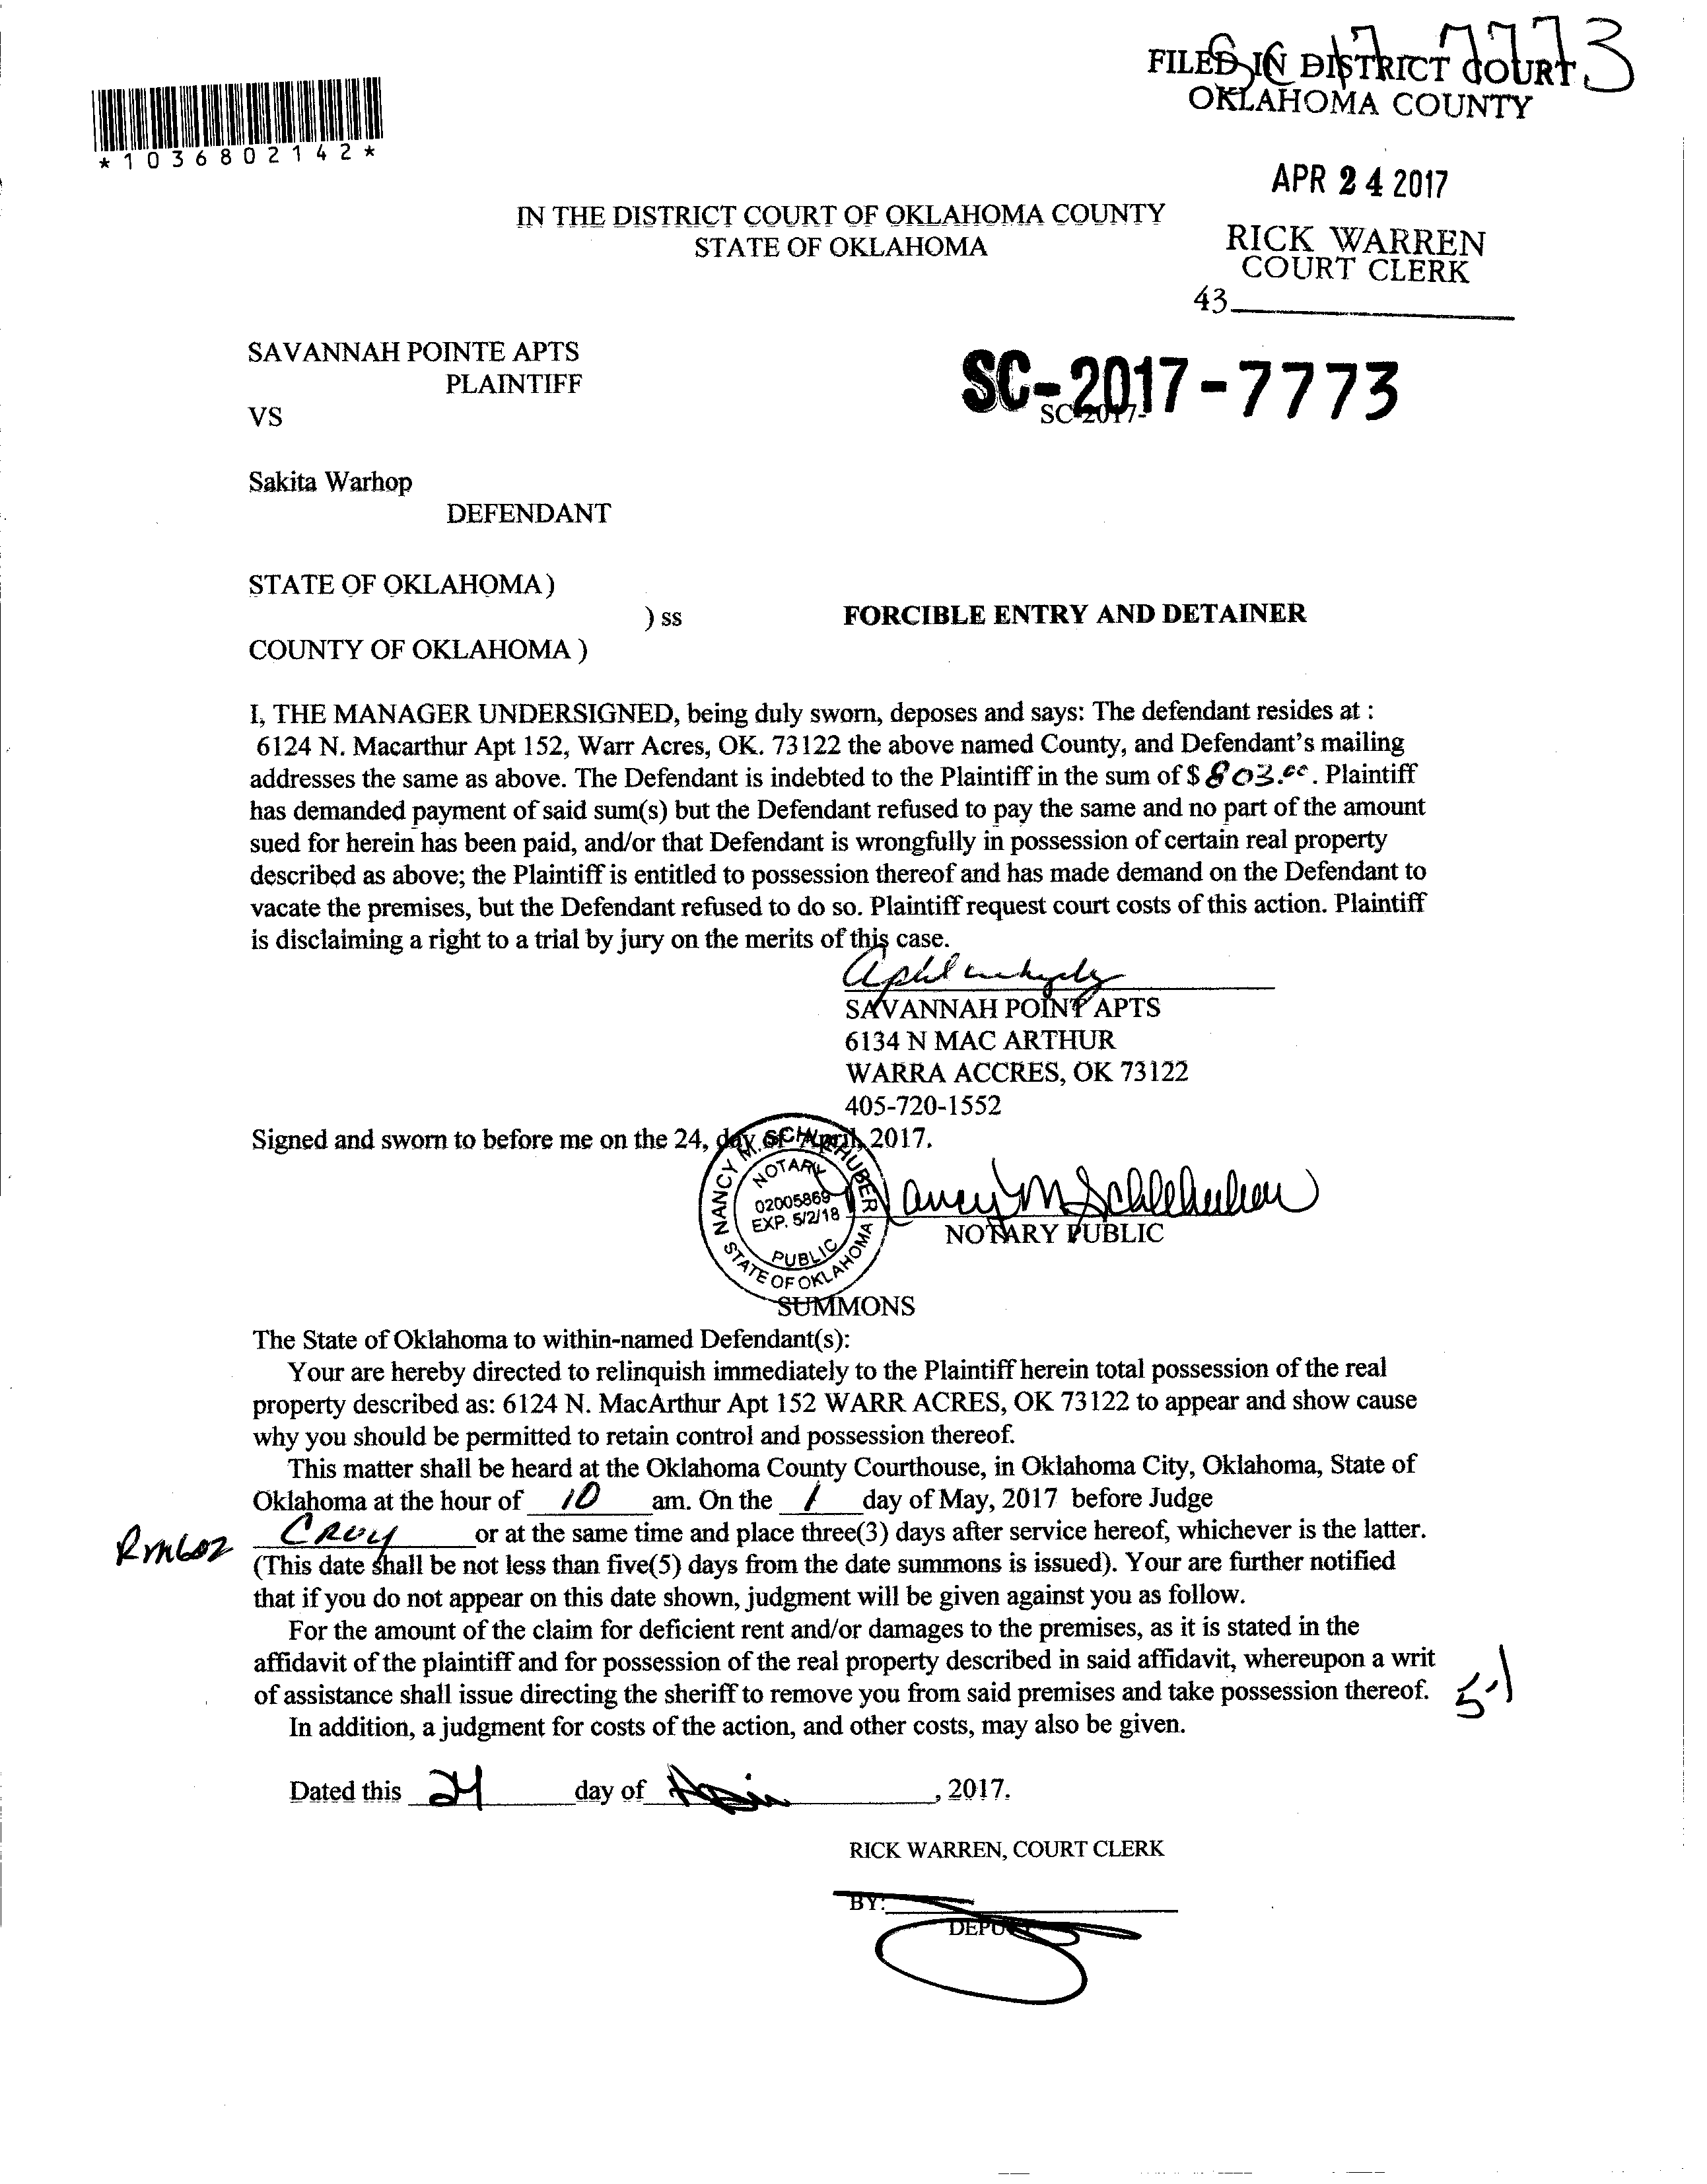 SC 17 7773
FILED IN DISTRICT COURT
OKLAHOMA COUNTY
*1036802142*
APR 24 2017
IN THE DISTRICT COURT OF OKLAHOMA COUNTY
STATE OF OKLAHOMA
RICK WARREN
COURT CLERK
43
SAVANNAH POINTE APTS
PLAINTIFF
VS
SC-2017-7773
SC-2017-
Sakita Warhop
DEFENDANT
STATE OF OKLAHOMA )
) ss
FORCIBLE ENTRY AND DETAINER
COUNTY OF OKLAHOMA )
I, THE MANAGER UNDERSIGNED, being duly sworn, deposes and says: The defendant resides at :
6124 N. Macarthur Apt 152, Warr Acres, OK. 73122 the above named County, and Defendant's mailing
addresses the same as above. The Defendant is indebted to the Plaintiff in the sum of $ 803.00. Plaintiff
has demanded payment of said sum(s) but the Defendant refused to pay the same and no part of the amount
sued for herein has been paid, and/or that Defendant is wrongfully in possession of certain real property
described as above; the Plaintiff is entitled to possession thereof and has made demand on the Defendant to
vacate the premises, but the Defendant refused to do so. Plaintiff request court costs of this action. Plaintiff
is disclaiming a right to a trial by jury on the merits of this case.
SAVANNAH POINT APTS
6134 N MAC ARTHUR
WARRA ACCRES, OK 73122
405-720-1552
Signed and sworn to before me on the 24, day of April, 2017.
NANCY M. SCHLEHUBER
NOTARY
02005869
EXP. 5/2/18
PUBLIC
STATE OF OKLAHOMA
Nancy M Schlehuber
NOTARY PUBLIC
SUMMONS
The State of Oklahoma to within-named Defendant(s):
Your are hereby directed to relinquish immediately to the Plaintiff herein total possession of the real
property described as: 6124 N. MacArthur Apt 152 WARR ACRES, OK 73122 to appear and show cause
why you should be permitted to retain control and possession thereof.
This matter shall be heard at the Oklahoma County Courthouse, in Oklahoma City, Oklahoma, State of
Oklahoma at the hour of 10 am. On the 1 day of May, 2017 before Judge
Rm602 CROY or at the same time and place three(3) days after service hereof, whichever is the latter.
(This date shall be not less than five(5) days from the date summons is issued). Your are further notified
that if you do not appear on this date shown, judgment will be given against you as follow.
For the amount of the claim for deficient rent and/or damages to the premises, as it is stated in the
affidavit of the plaintiff and for possession of the real property described in said affidavit, whereupon a writ
of assistance shall issue directing the sheriff to remove you from said premises and take possession thereof.
5-1
In addition, a judgment for costs of the action, and other costs, may also be given.
Dated this 24 day of , 2017.
RICK WARREN, COURT CLERK
BY:
DEPUTY